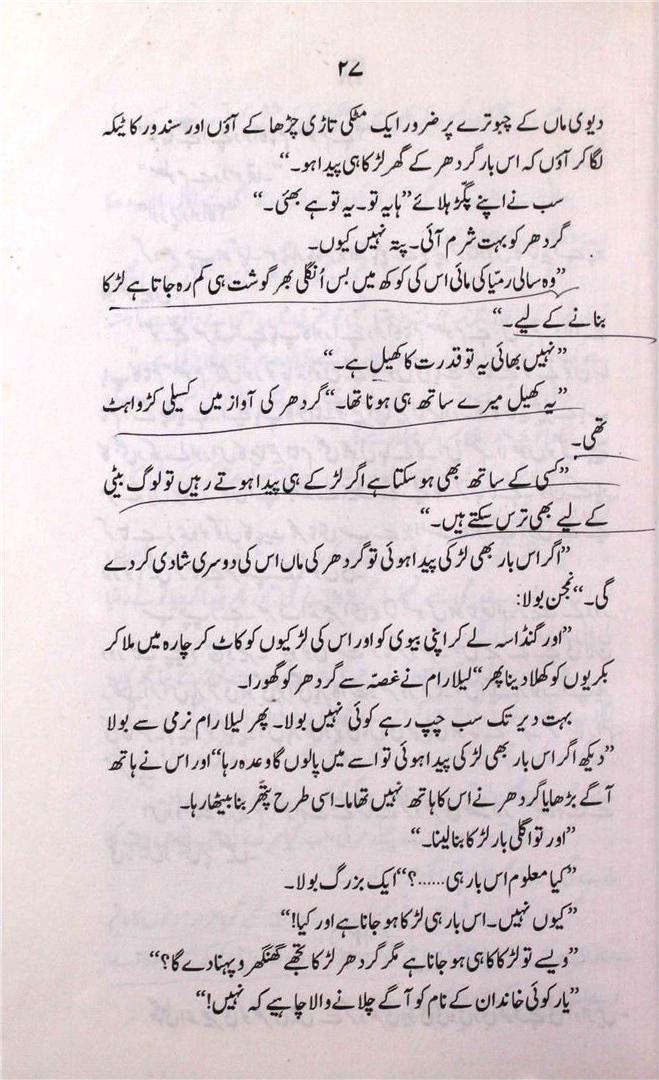 ۲۷
دیوی ماں کے چبوترے پر ضرور ایک مٹکی تاڑی چڑھا کے آؤں اور سندور کا ٹیکہ
لگا کر آؤں کہ اس بار گردھر کے گھر لڑکا ہی پیدا ہو۔“
سب نے اپنے پگڑ ہلائے ”ہا یہ تو۔ یہ تو ہے بھئی۔“
گردھر کو بہت شرم آئی۔ پتہ نہیں کیوں۔
”وہ سالی رمیّا کی مائی اس کی کوکھ میں بس اُنگلی بھر گوشت ہی کم رہ جاتا ہے لڑکا
بنانے کے لیے۔“
”نہیں بھائی یہ تو قدرت کا کھیل ہے۔“
”یہ کھیل میرے ساتھ ہی ہونا تھا۔“ گردھر کی آواز میں کسیلی کڑواہٹ
تھی۔
”کسی کے ساتھ بھی ہو سکتا ہے اگر لڑکے ہی پیدا ہوتے رہیں تو لوگ بیٹی
کے لیے بھی ترس سکتے ہیں۔“
”اگر اس بار بھی لڑکی پیدا ہوئی تو گردھر کی ماں اس کی دوسری شادی کر دے
گی۔“ نجن بولا:
”اور گنڈاسہ لے کر اپنی بیوی کو اور اس کی لڑکیوں کو کاٹ کر چارہ میں ملا کر
بکریوں کو کھلا دینا پھر“ لیلا رام نے غصّہ سے گردھر کو گھورا۔
بہت دیر تک سب چپ رہے کوئی نہیں بولا۔ پھر لیلا رام نرمی سے بولا
”دیکھ اگر اس بار بھی لڑکی پیدا ہوئی تو اسے میں پالوں گا وعدہ رہا“ اور اس نے ہاتھ
آگے بڑھایا گردھر نے اس کا ہاتھ نہیں تھاما۔ اسی طرح پتھّر بنا بیٹھا رہا۔
”اور تو اگلی بار لڑکا بنا لینا۔“
”کیا معلوم اس بار ہی......؟“ ایک بزرگ بولا۔
”کیوں نہیں۔ اس بار ہی لڑکا ہو جانا ہے اور کیا!“
”ویسے تو لڑکا کا ہی ہو جانا ہے مگر گردھر لڑکا تجھے گھنگھرو پہنا دے گا؟“
”یار کوئی خاندان کے نام کو آگے چلانے والا چاہیے کہ نہیں!“